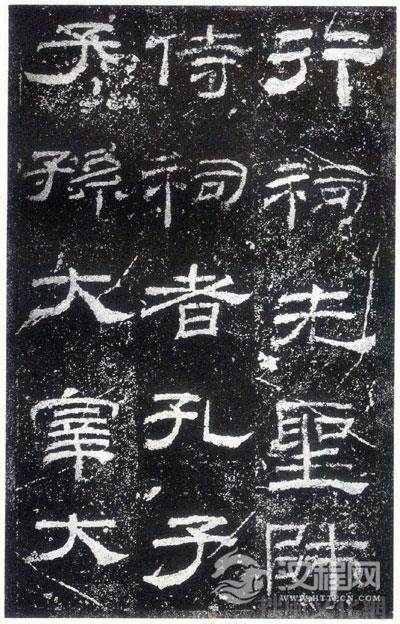 行祠先聖師
侍祠者孔子
子孫大宰大
汉程网